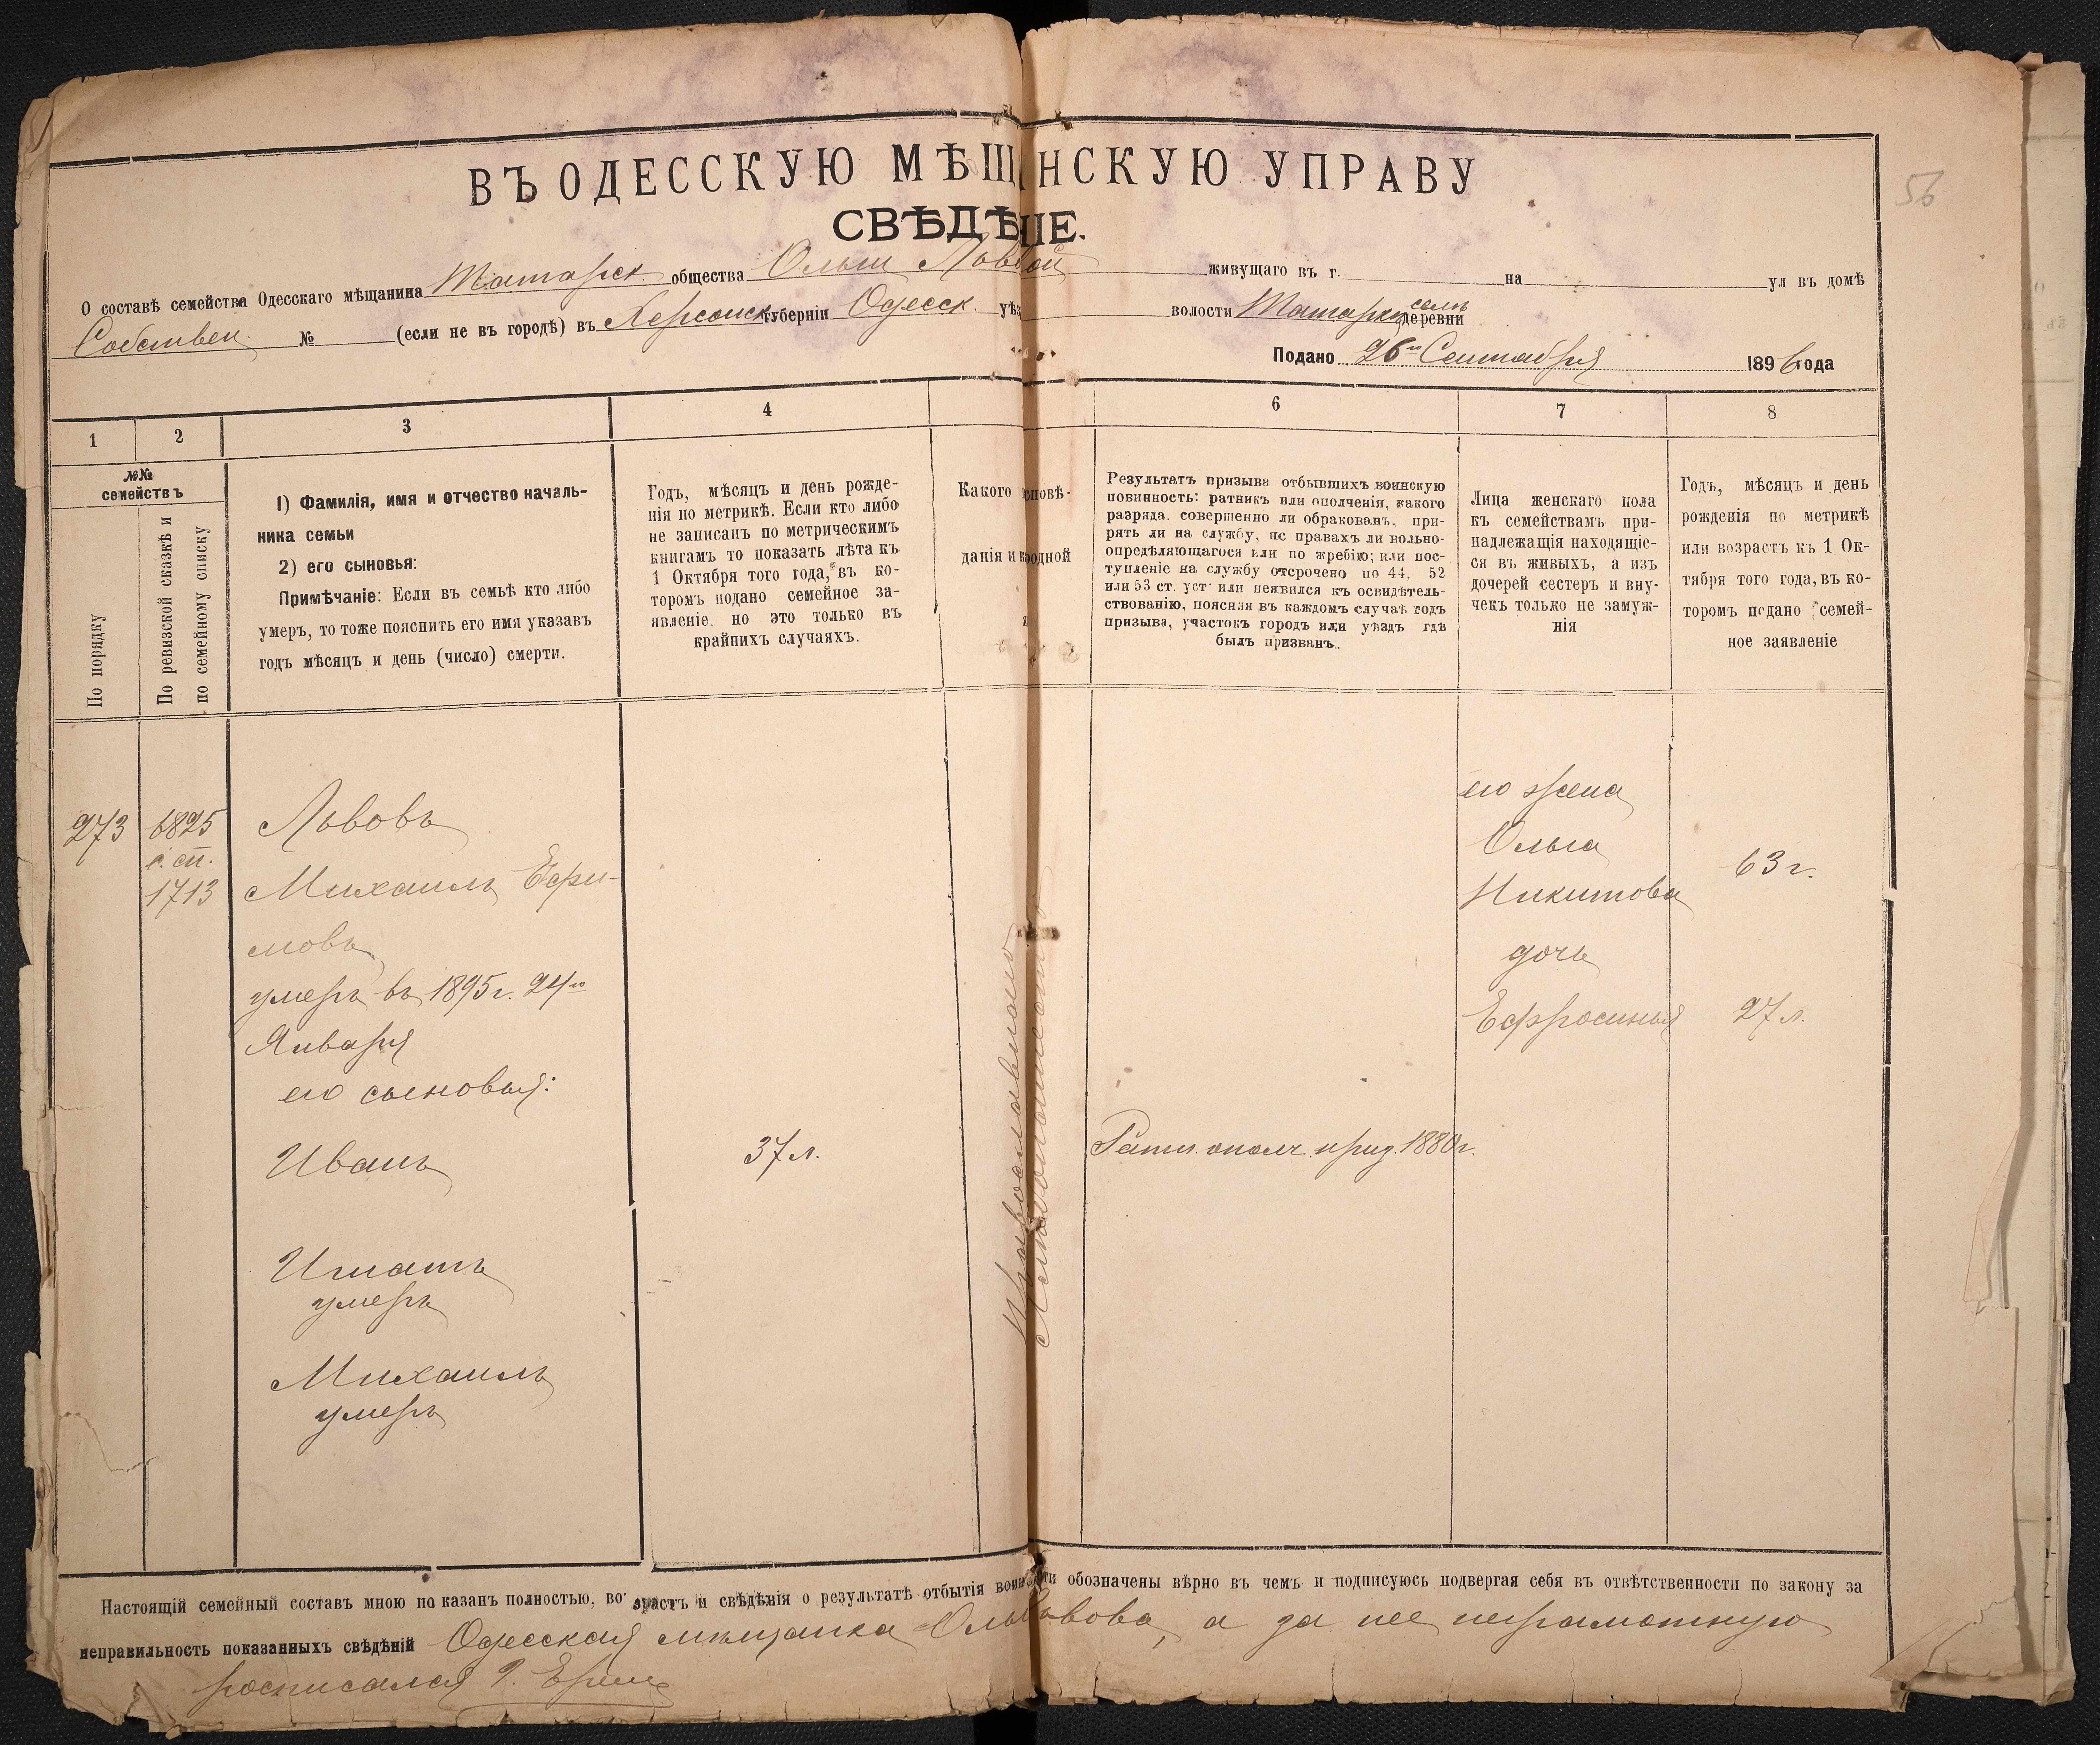 56
ВЪ ОДЕССКУЮ МѢЩ НСКУЮ УПРАВУ
СВѢДѢ IЕ.
О составѣ семейства Одесскаго мѣщанина Татарск. общества Ольги Львовой живущаго въ г. на ул въ домѣ
Собствен. № (если не въ городѣ) въ Херсонск. губерніи Одесск. уѣз волости Татарки селѣ деревни
Подано 26го Сентября 1896 года
1 2 3 4 6 7 8
№№ семействъ
По порядку
По ревизской сказкѣ и по семейному списку
1) Фамилія, имя и отчество началь-
ника семьи
2) его сыновья:
Примѣчаніе: Если въ семьѣ кто либо
умеръ, то тоже пояснить его имя указавъ
годъ мѣсяцъ и день (число) смерти.
Годъ, мѣсяцъ и день рожде-
нія по метрикѣ. Если кто либо
не записанъ по метрическимъ
книгамъ то показать лѣта къ
1 Октября того года, въ ко-
торомъ подано семейное за-
явленіе. но это только въ
крайнихъ случаяхъ.
Какого исповѣ-
данія и народной
Результатъ призыва отбывшихъ воинскую
повинность: ратникъ или ополченія, какого
разряда. совершенно ли обракованъ, при-
рять ли на службу, нс правахъ ли вольно-
опредѣляющагося или по жребію; или пос-
тупленіе на службу отсрочено по 44. 52
или 53 ст. уст. или неявился къ освидѣтель-
ствованію, поясняя въ каждомъ случаѣ годъ
призыва, участокъ городъ или уѣздъ гдѣ
былъ призванъ.
Лица женскаго пола
къ семействамъ при-
надлежащія находящіе-
ся въ живыхъ, а изъ
дочерей сестеръ и вну-
чекъ только не замуж-
нія
Годъ, мѣсяцъ и день
рожденія по метрикѣ
или возрастъ къ 1 Ок-
тября того года, въ ко-
торомъ подано семей-
ное заявленіе
273
6825
с. сп.
1713
Львовъ
Михаилъ Ефи-
мовъ
умеръ въ 1895 г. 24го
Января
его сыновья:
Иванъ
37 л.
Ратн. ополч. приз. 1880 г.
Игнатъ
умеръ
Михаилъ
умеръ
Православнаго
его жена
Ольга
Никитова
63 г.
дочь
Ефросинья
27 л.
Настоящій семейный составъ мною показанъ полностью, возрастъ и свѣдѣнія о результатѣ отбытія воин сти обозначены вѣрно въ чемъ и подписуюсь подвергая себя въ отвѣтственности по закону за
неправильность показанныхъ свѣдѣній Одесская мѣщанка Оль Львова, а за нее неграмотную
росписался